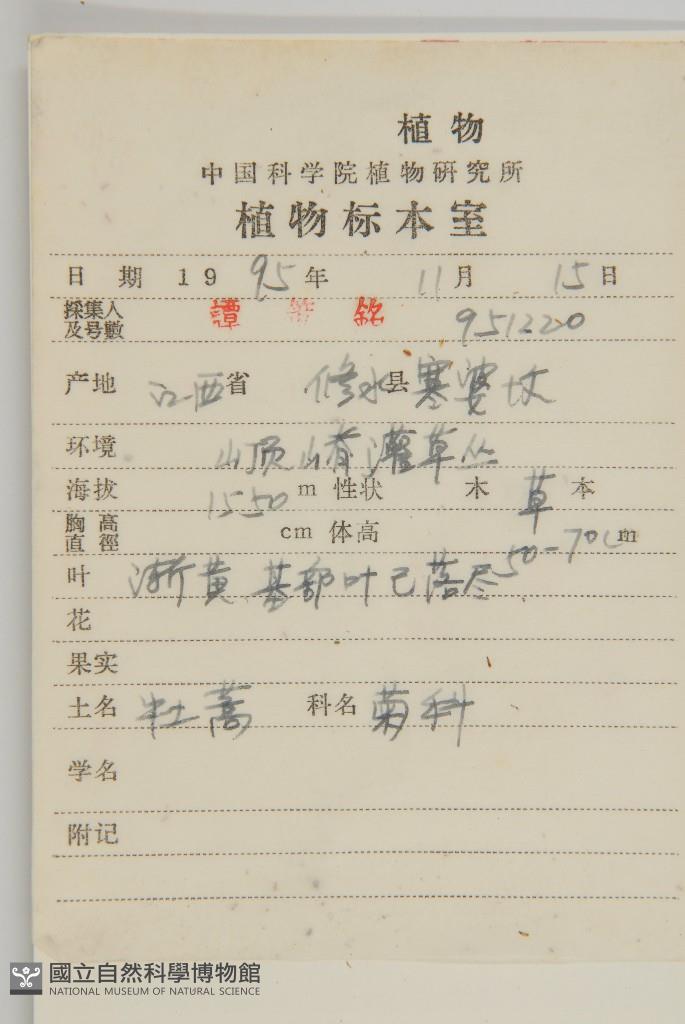 植物
中国科学院植物研究所
植物标本室
日期 1995年 11月 15日
採集人及号數 譚 銘 951220
产地 江西省 修水县寒婆坟
环境 山顶山脊灌草丛
海拔 1550 m 性状 木 草 本
胸高直徑 cm 体高 50-70cm m
叶 渐黄 基部叶已落尽
花
果实
土名 牡蒿 科名 菊科
学名
附记
國立自然科學博物館
NATIONAL MUSEUM OF NATURAL SCIENCE